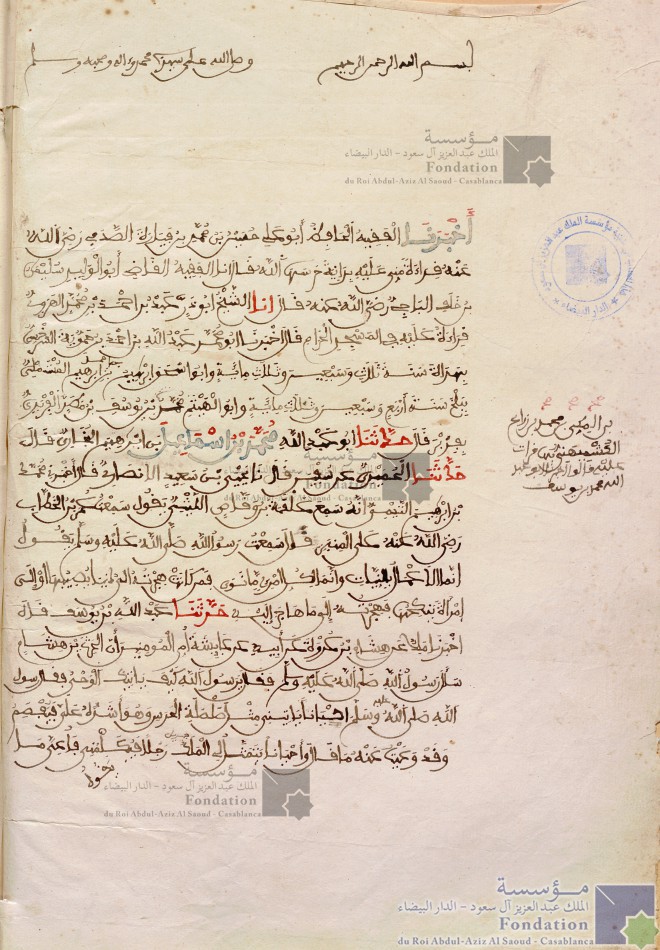 بسم الله الرحمن الرحيم وصلى الله على سيدنا محمد وءاله وصحبه وسلم
مؤسسة
الملك عبد العزيز آل سعود - الدار البيضاء
Fondation
du Roi Abdul-Aziz Al Saoud - Casablanca
أخبرنا الفقيه الحافظ أبو علي حسين بن محمد بن فيارة الصدفي رضي الله
عنه قراءة مني عليه بدانية حرسها الله قال انا الفقيه القاضي أبو الوليد سليمن
بن خلف الباجي رضي الله عنه قال انا الشيخ ابو ذر عبد بن احمد بن محمد الهروي
قراءة عليه في المسجد الحرام قال اخبرنا ابو محمد عبد الله بن احمد بن حموية السرخسي
بهراة سنة ثلاث وسبعين وثلث ماية وابو اسحق ابرهيم بن احمد بن ابرهيم المستملي
ببلخ سنة أربع وسبعين وثلث ماية وابو الهيثم محمد بن يوسف بن مطر الفربري
بفربر قال حدثنا ابو عبد الله محمد بن اسماعيل بن ابرهيم البخاري قال
حدثنا الحميدي عن سفين قال نا يحيى بن سعيد الانصاري قال أخبرني محمد
بن ابرهيم التيمي انه سمع علقمة بن وقاص الليثي يقول سمعت عمر بن الخطاب
رضي الله عنه على المنبر قال سمعت رسول الله صلى الله عليه وسلم يقول
انما الاعمال بالنيات وانما لكل امرئ ما نوى فمن كانت هجرته الى دنيا يصيبها او الى
امرأة ينكحها فهجرته إلى ما هاجر إليه حدثنا عبد الله بن يوسف قال
اخبرنا ملك عن هشام بن عروة عن أبيه عن عايشة أم المومنين أن الحرث بن هشام
سأل رسول الله صلى الله عليه وسلم فقال يرسول الله كيف ياتيك الوحي فقال رسول
الله صلى الله عليه وسلم احيانا ياتيني مثل صلصلة الجرس وهو أشده علي فيفصم
وقد وعيت عنه ما قال وأحيانا يتمثل لي الملك رجلا فيكلمني فأعي ما
يقول
بن المكي محمد بن زراع
الكشميهني
عليه
الله محمد بن يوسف
مؤسسة
الملك عبد العزيز آل سعود - الدار البيضاء
Fondation
du Roi Abdul-Aziz Al Saoud - Casablanca
مؤسسة
الملك عبد العزيز آل سعود - الدار البيضاء
Fondation
du Roi Abdul-Aziz Al Saoud - Casablanca